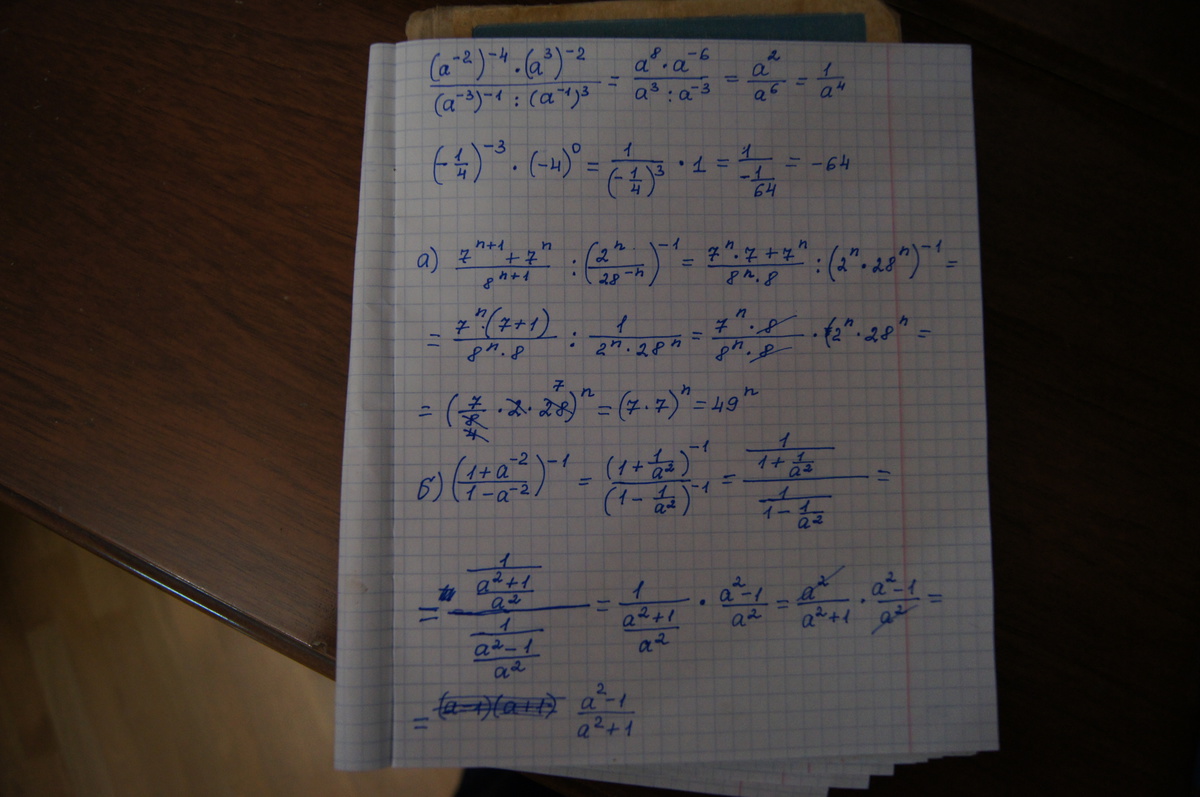 (a⁻²)⁻⁴ · (a³)⁻² / (a⁻³)⁻¹ : (a⁻¹)³ = a⁸ · a⁻⁶ / a³ : a⁻³ = a² / a⁶ = 1 / a⁴
(-1/4)⁻³ · (-4)⁰ = 1 / (-1/4)³ · 1 = 1 / -1/64 = -64
а) 7ⁿ⁺¹ + 7ⁿ / 8ⁿ⁺¹ : (2ⁿ / 28⁻ⁿ)⁻¹ = 7ⁿ · 7 + 7ⁿ / 8ⁿ · 8 : (2ⁿ · 28ⁿ)⁻¹ =
= 7ⁿ · (7+1) / 8ⁿ · 8 : 1 / 2ⁿ · 28ⁿ = 7ⁿ · 8 / 8ⁿ · 8 · (2ⁿ · 28ⁿ =
= (7 / 8 4 · 2 · 28 7)ⁿ = (7 · 7)ⁿ = 49ⁿ
б) (1+a⁻² / 1-a⁻²)⁻¹ = (1 + 1/a²)⁻¹ / (1 - 1/a²)⁻¹ = 1 / 1 + 1/a² / 1 / 1 - 1/a² =
= 1 / a²+1 / a² / 1 / a²-1 / a² = 1 / a²+1 / a² · a²-1 / a² = a² / a²+1 · a²-1 / a² =
= (a-1)(a+1) a²-1 / a²+1